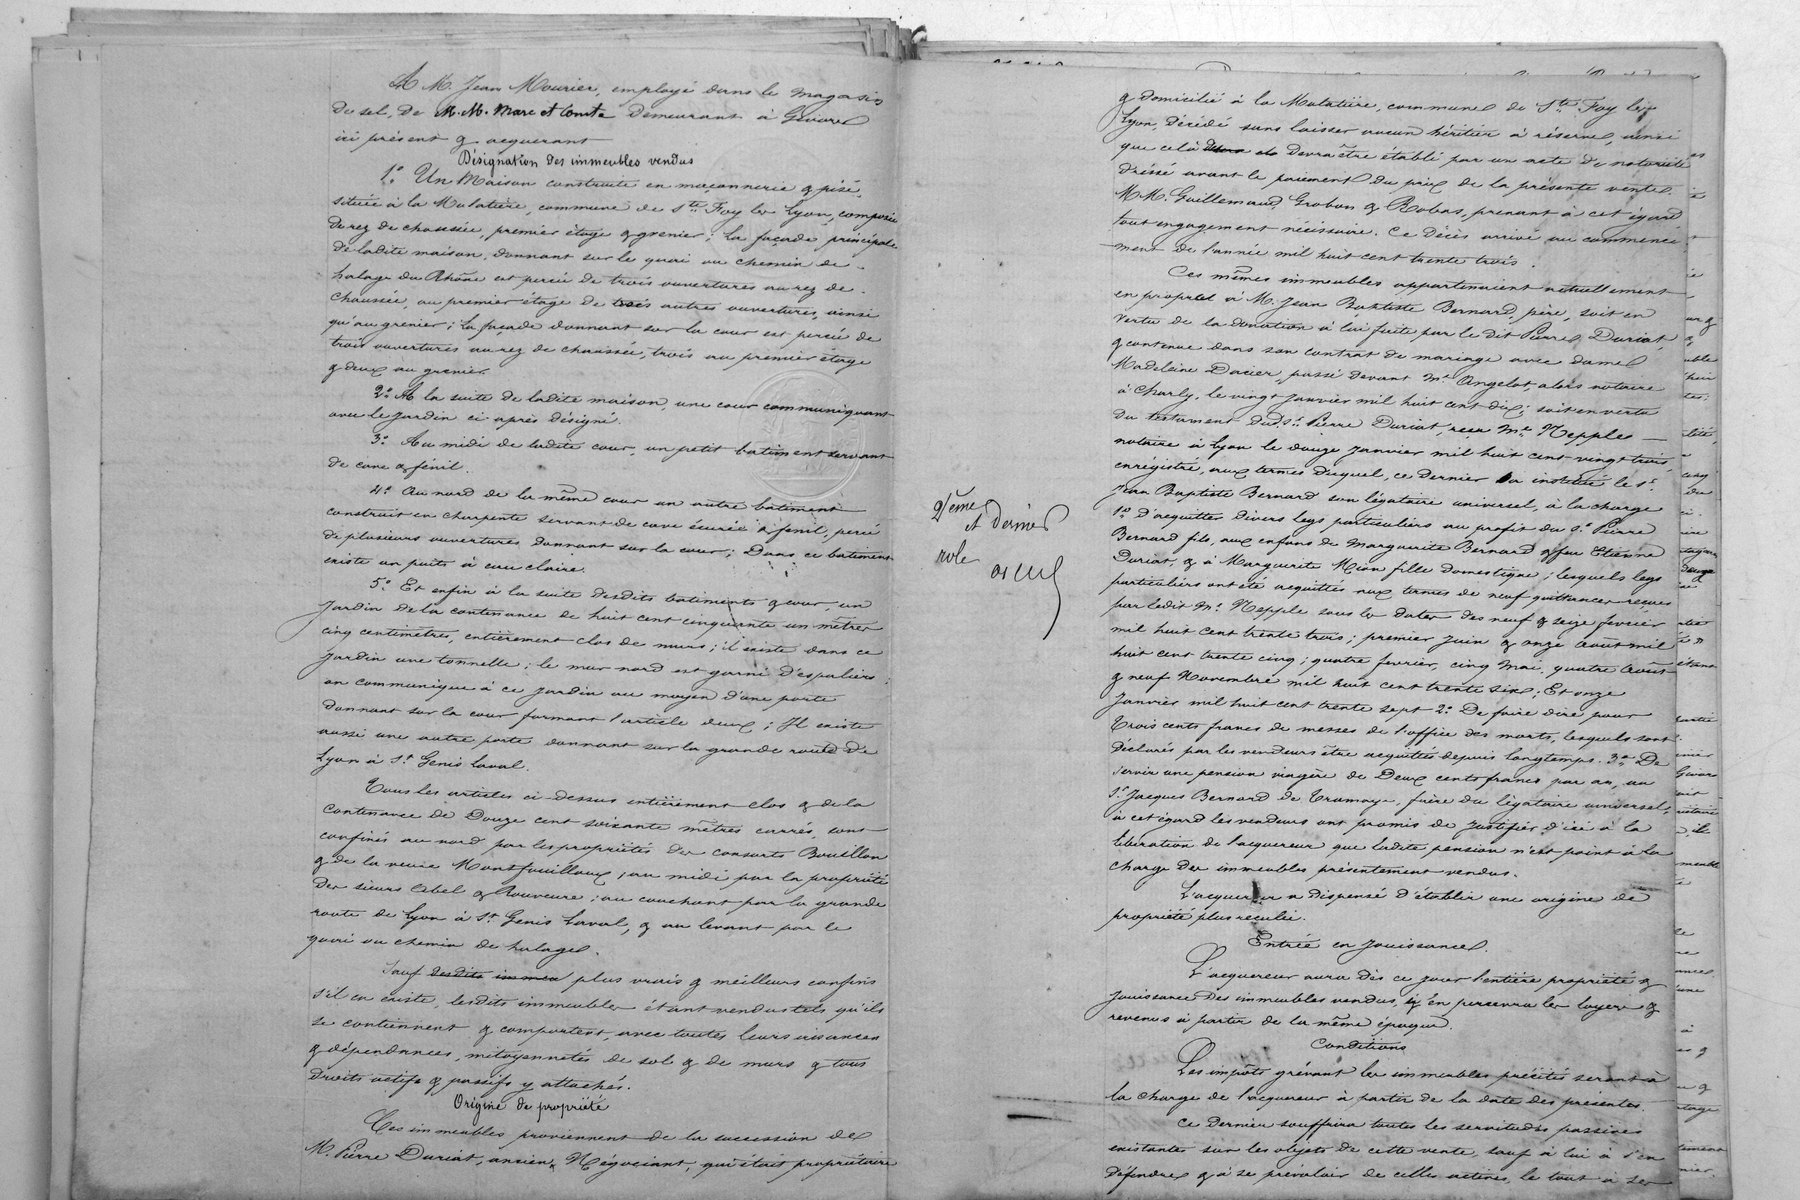 A M. Jean Mourier, employé dans le magasin
de sel, de M.M. Marc et Comte demeurant à Givors
ici présent & acquérant
Désignation des immeubles vendus
1.º Un Maison construite en maçonnerie & pisé
située à la Mulatière, commune de Ste Foy les Lyon, composée
de rez de chaussée, premier étage & grenier ; la façade principale
de ladite maison, donnant sur le quai ou chemin de
halage du Rhône est percée de trois ouvertures au rez de
chaussée, au premier étage de trois autres ouvertures, ainsi
qu'au grenier ; la façade donnant sur la cour est percée de
trois ouvertures au rez de chaussée, trois au premier étage
& deux au grenier
2.º A la suite de ladite maison, une cour communiquant
avec le jardin ci après désigné.
3.º Au midi de ladite cour, un petit batiment servant
de cave & fénil.
4.º Au nord de la même cour un autre batiment
construit en charpente servant de cave écurie & fenil, percé
de plusieurs ouvertures donnant sur la cour ; Dans ce batiment
existe un puits à eau claire.
5.º Et enfin à la suite desdits batiments & cour, un
jardin de la contenance de huit cent cinquante un mètres
cinq centimètres, entièrement clos de murs ; il existe dans ce
jardin une tonnelle ; le mur nord est garni d'espaliers ;
on communique à ce jardin au moyen d'une porte
donnant sur la cour formant l'article deux ; Il existe
aussi une autre porte donnant sur la grande route de
Lyon à St Genis Laval.
Tous les articles ci-dessus entièrement clos & de la
contenance de Douze cent soixante mètres carrés, sont
confinés au nord par les propriétés des consorts Bouillon
& de la veuve Montfouilloux ; au midi par la propriété
des sieurs Abel & Rouveure ; au couchant par la grande
route de Lyon à St Genis Laval, & au levant par le
quai ou chemin de halage.
Sauf desdits immeu plus vrais & meilleurs confins
s'il en existe, lesdits immeubles étant vendus tels qu'ils
se contiennent & comportent, avec toutes leurs aisances
& dépendances, mitoyennetés de sol & de murs & tous
droits actifs & passifs y attachés.
Origine de propriété
Ces immeubles proviennent de la succession de
M. Pierre Duriat, ancien Négociant, qui était propriétaire
2ème
et dernier
role
& domicilié à la Mulatière, commune de Ste Foy les
Lyon, décédé sans laisser aucun héritier à réserve, ainsi
que celà devra être établi par un acte de notoriété
dressé avant le paiement du prix de la présente vente.
M.M. Guillemaud, Grobon & Robas, prenant à cet égard
tout engagement nécessaire. Ce décès arrivé au commence
ment de l'année mil huit cent trente trois.
Ces mêmes immeubles appartenaient actuellement
en propriété à M. Jean Baptiste Bernard, père, soit en
vertu de la donation à lui faite par le dit Pierre Duriat,
& contenue dans son contrat de mariage avec dame
Madeleine Dacier, passé devant Mr Angelot alors notaire
à Charly, le vingt janvier mil huit cent dix ; soit en vertu
du testament dud. Sr Pierre Duriat, reçu Me Nepple
notaire à Lyon le douze janvier mil huit cent vingt trois,
enrégistré, aux termes duquel, ce dernier a institué le Sr
Jean Baptiste Bernard son légataire universel, à la charge
1º D'acquitter divers legs particuliers au profit du Sr Pierre
Bernard fils, aux enfans de Marguerite Bernard & feu Etienne
Duriat, & à Marguerite Mion fille domestique ; lesquels legs
particuliers ont été acquittés aux termes de neuf quittances reçues
par ledit Me Nepple sous les dates des neuf & seize fevrier
mil huit cent trente trois ; premier Juin & onze Août mil
huit cent trente cinq ; quatre fevrier, cinq Mai, quatre Août
& neuf Novembre mil huit cent trente six ; Et onze
Janvier mil huit cent trente sept 2º De faire dire pour
trois cents francs de messes de l'office des morts, lesquels sont
déclarés par les vendeurs être acquittés depuis longtemps. 3º De
servir une pension viagère de Deux cents francs par an, au
Sr Jacques Bernard de Tramoye, frère du légataire universel,
à cet égard les vendeurs ont promis de justifier d'ici à la
libération de l'acquereur que ladite pension n'est point à la
charge des immeubles présentement vendus.
L'acquereur a dispensé d'établir une origine de
propriété plus reculée.
Entrée en jouissance.
L'acquereur aura dès ce jour l'entière propriété &
jouissance des immeubles vendus, & en percevra les loyers &
revenus à partir de la même époque.
Conditions
Les impôts grévant les immeubles précités seront à
la charge de l'acquereur à partir de la date des présentes.
Ce dernier souffrira toutes les servitudes passives
existantes sur les objets de cette vente, sauf à lui à s'en
défendre & à se prévaloir de celles actives, le tout à ses